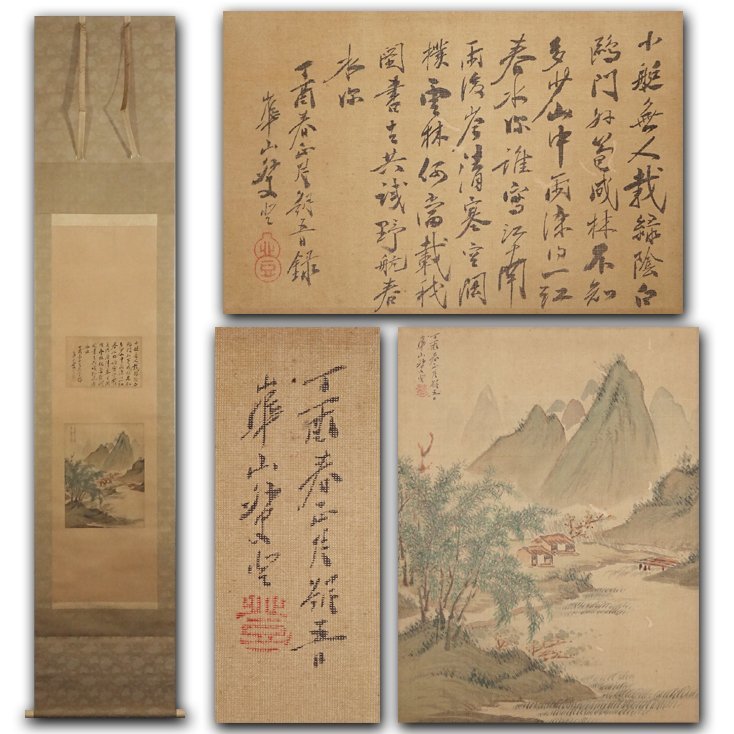 小艇無人載綠陰白
鷗門外筍成林不知
多少山中雨添得一江
春水深誰寫江南
雨後岑清寒空闊
樸雲林何當載我
圖書去共試野航春
水深
丁酉春正月初五日録
崋山登
丁酉春正月初五日
崋山登
丁酉春正月初五日
崋山登